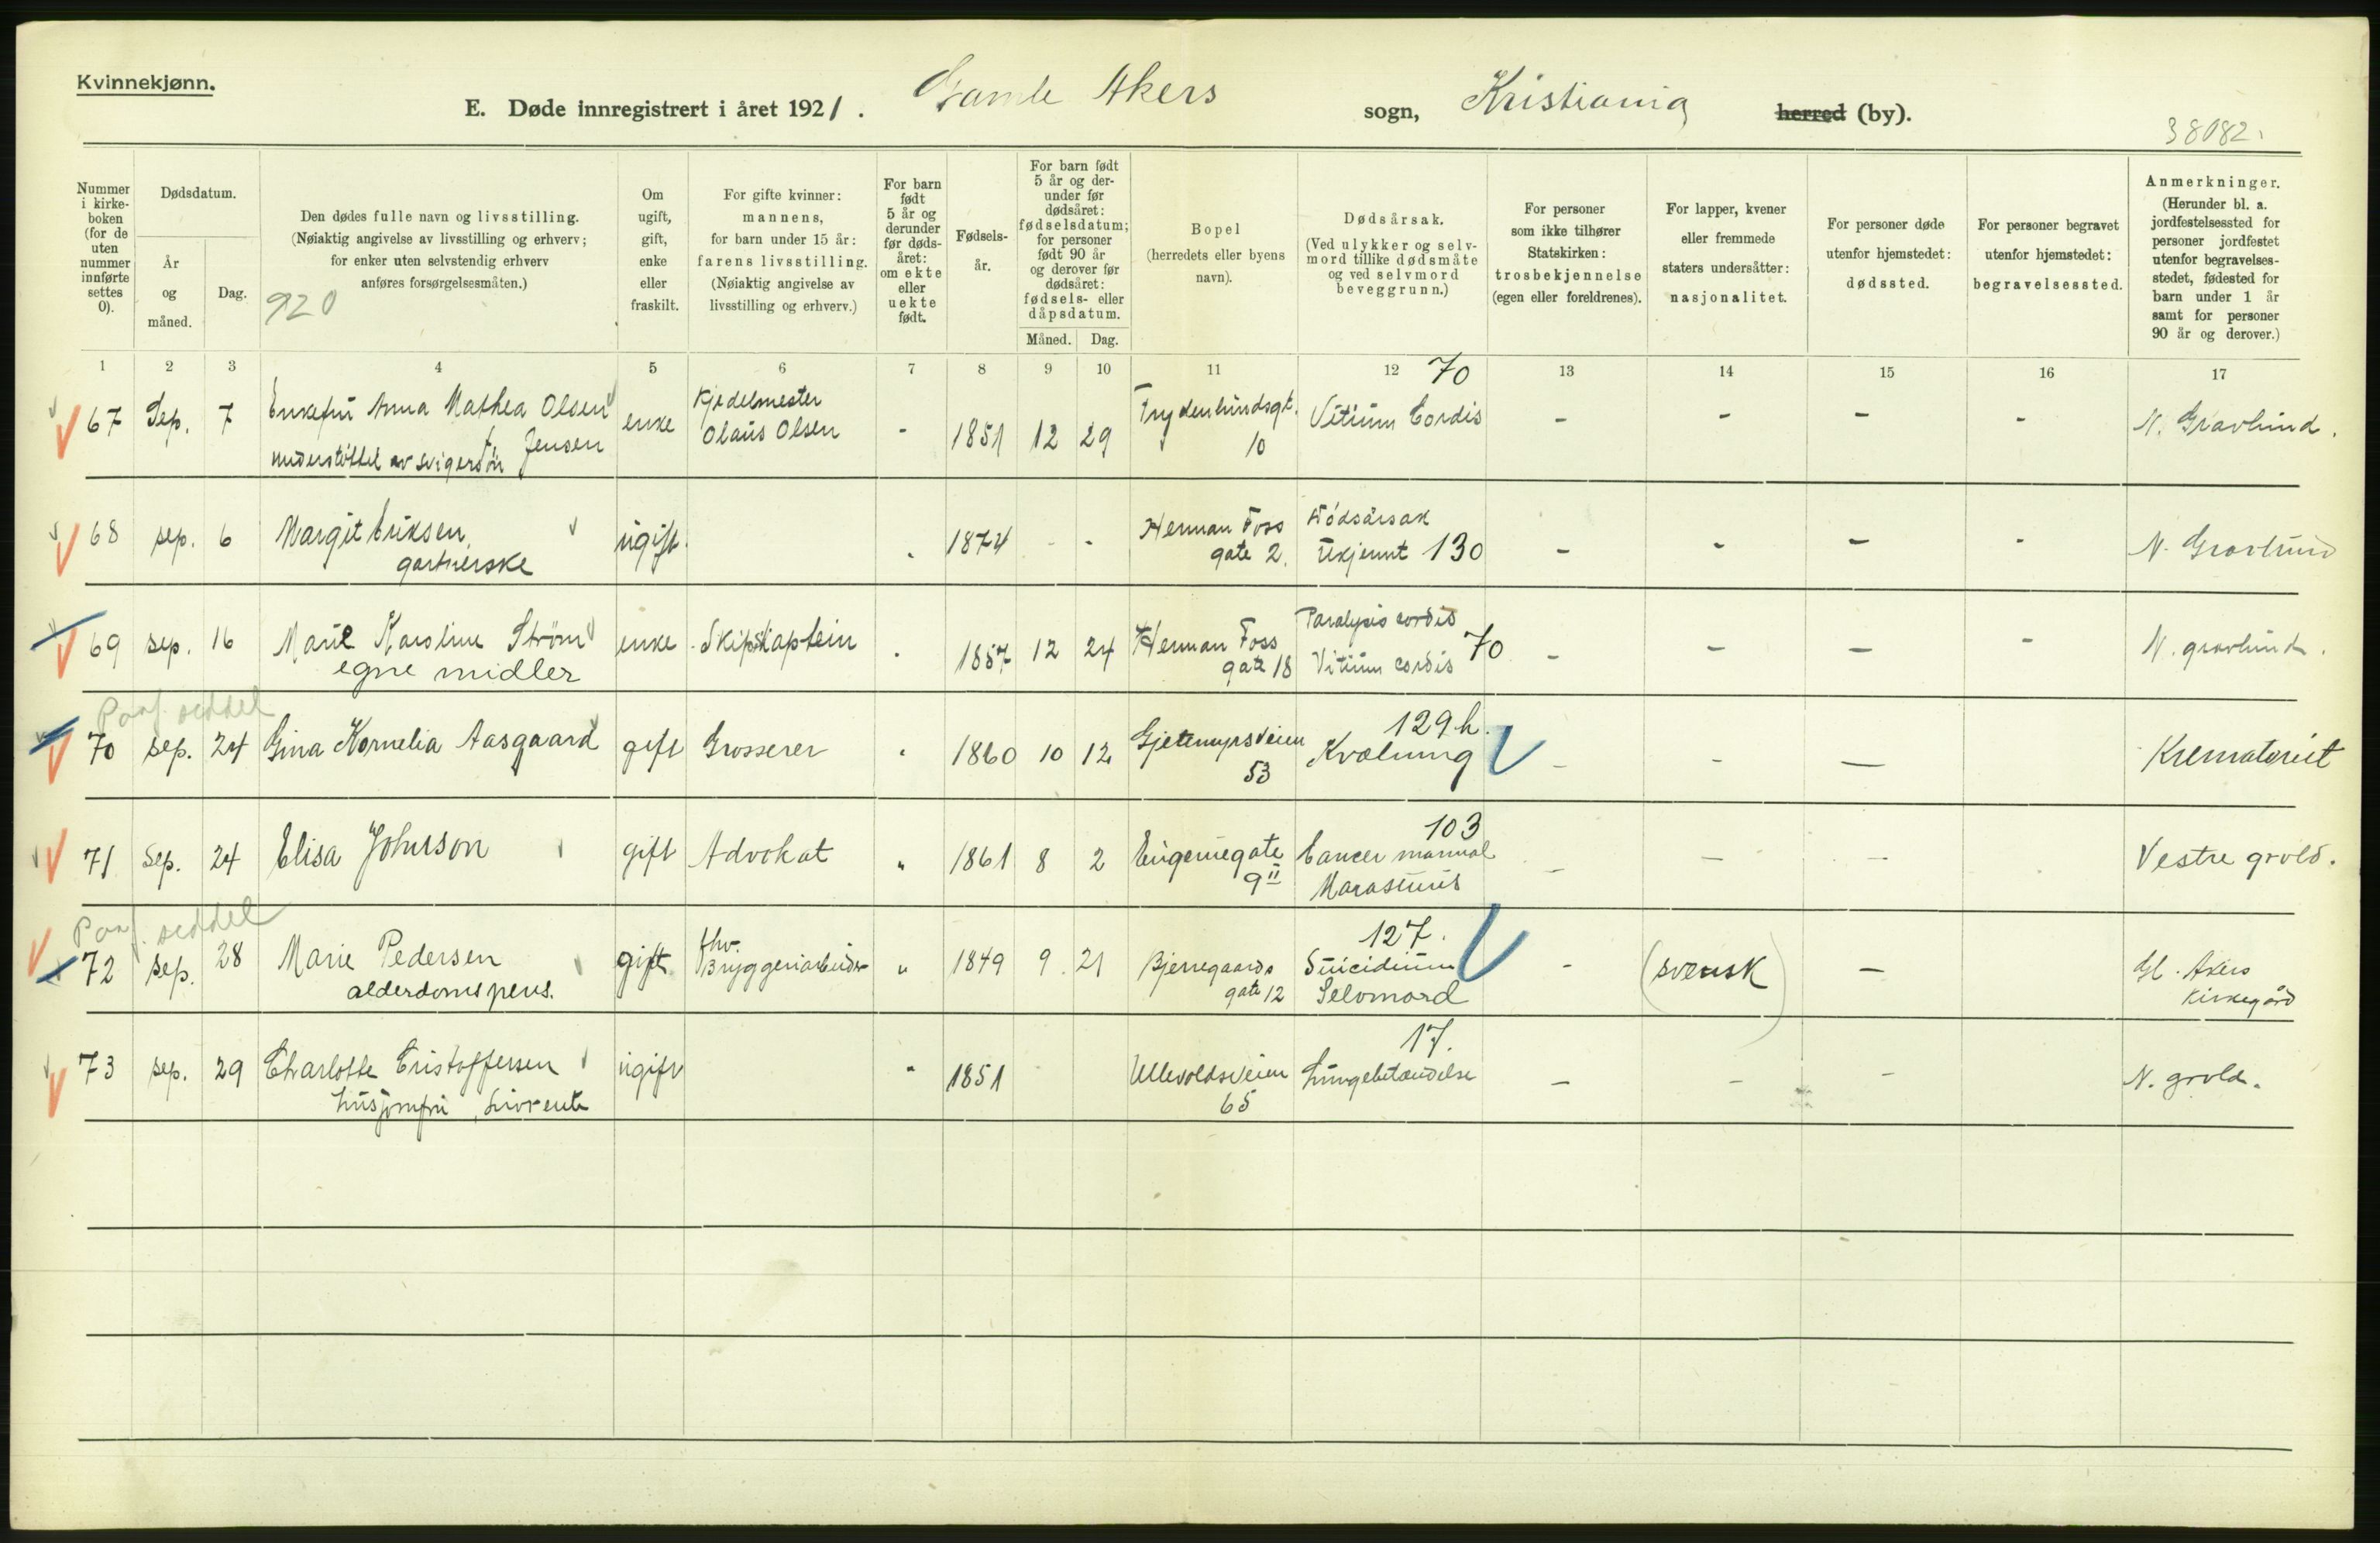 Kvinnekjønn.
E. Døde innregistrert i året 1921. Gamle Akers sogn, Kristiania herred (by).
38082.
Nummer i kirkeboken (for de uten nummer innførte settes 0).
Dødsdatum.
År og måned.
Dag.
Den dødes fulle navn og livsstilling.
(Nøiaktig angivelse av livsstilling og erhverv;
for enker uten selvstendig erhverv
anføres forsørgelsesmåten.)
920
Om ugift, gift, enke eller fraskilt.
For gifte kvinner:
mannens,
for barn under 15 år:
farens livsstilling.
(Nøiaktig angivelse av
livsstilling og erhverv.)
For barn født 5 år og derunder før dødsåret: om ekte eller uekte født.
Fødselsår.
For barn født 5 år og derunder før dødsåret: fødselsdatum; for personer født 90 år og derover før dødsåret: fødsels- eller dåpsdatum.
Måned. Dag.
Bopel
(herredets eller byens
navn).
Dødsårsak.
(Ved ulykker og selvmord tillike dødsmåte og ved selvmord beveggrunn.)
For personer
som ikke tilhører
Statskirken:
trosbekjennelse
(egen eller foreldrenes).
For lapper, kvener
eller fremmede
staters undersåtter:
nasjonalitet.
For personer døde
utenfor hjemstedet:
dødssted.
For personer begravet
utenfor hjemstedet:
begravelsessted.
Anmerkninger.
(Herunder bl. a.
jordfestelsessted for
personer jordfestet
utenfor begravelses-
stedet, fødested for
barn under 1 år
samt for personer
90 år og derover.)
1 2 3 4 5 6 7 8 9 10 11 12 13 14 15 16 17
67 Sep. 7 Enkefru Anna Mathea Olsen f. Jensen understøttet av svigersøn enke Kjedelmester Olaus Olsen - 1851 12 29 Frydenlundsgt. 10 Vitium Cordis 70 - - - - N. Gravlund.
68 sep. 6 Margit Eriksen, gartnerske ugift. - 1874 - - Herman Foss gate 2. Dødsårsak Ukjennt 130 - - - - N. Gravlund
69 sep. 16 Marie Karoline Strøm egne midler enke Skipskaptein - 1857 12 24 Herman Foss gate 18 Paralysis cordis Vitium cordis 70 - - - - N. gravlund.
seddel
70 sep. 24 Gina Kornelia Aasgaard gift Grosserer " 1860 10 12 Gjetemyrsveien 53 129 h. Kvælning - - - Krematoriet
71 Sep. 24 Elisa Johnson gift Advokat " 1861 8 2 Eugeniegate 9 II 103 Cancer mammae Marasmus - - - Vestre gravld.
seddel
72 sep. 28 Marie Pedersen alderdomspens. gift fhv. Bryggeriarbeider " 1849 9 21 Bjerregaards gate 12 127. Suicidium Selvmord - (svensk) - Gl. Akers Kirkegård
73 sep. 29 Charlotte Cristoffersen husjomfru, Livrente ugift " 1851 Ullevoldsveien 65 17. Lungebetændelse - - - N. gravld.